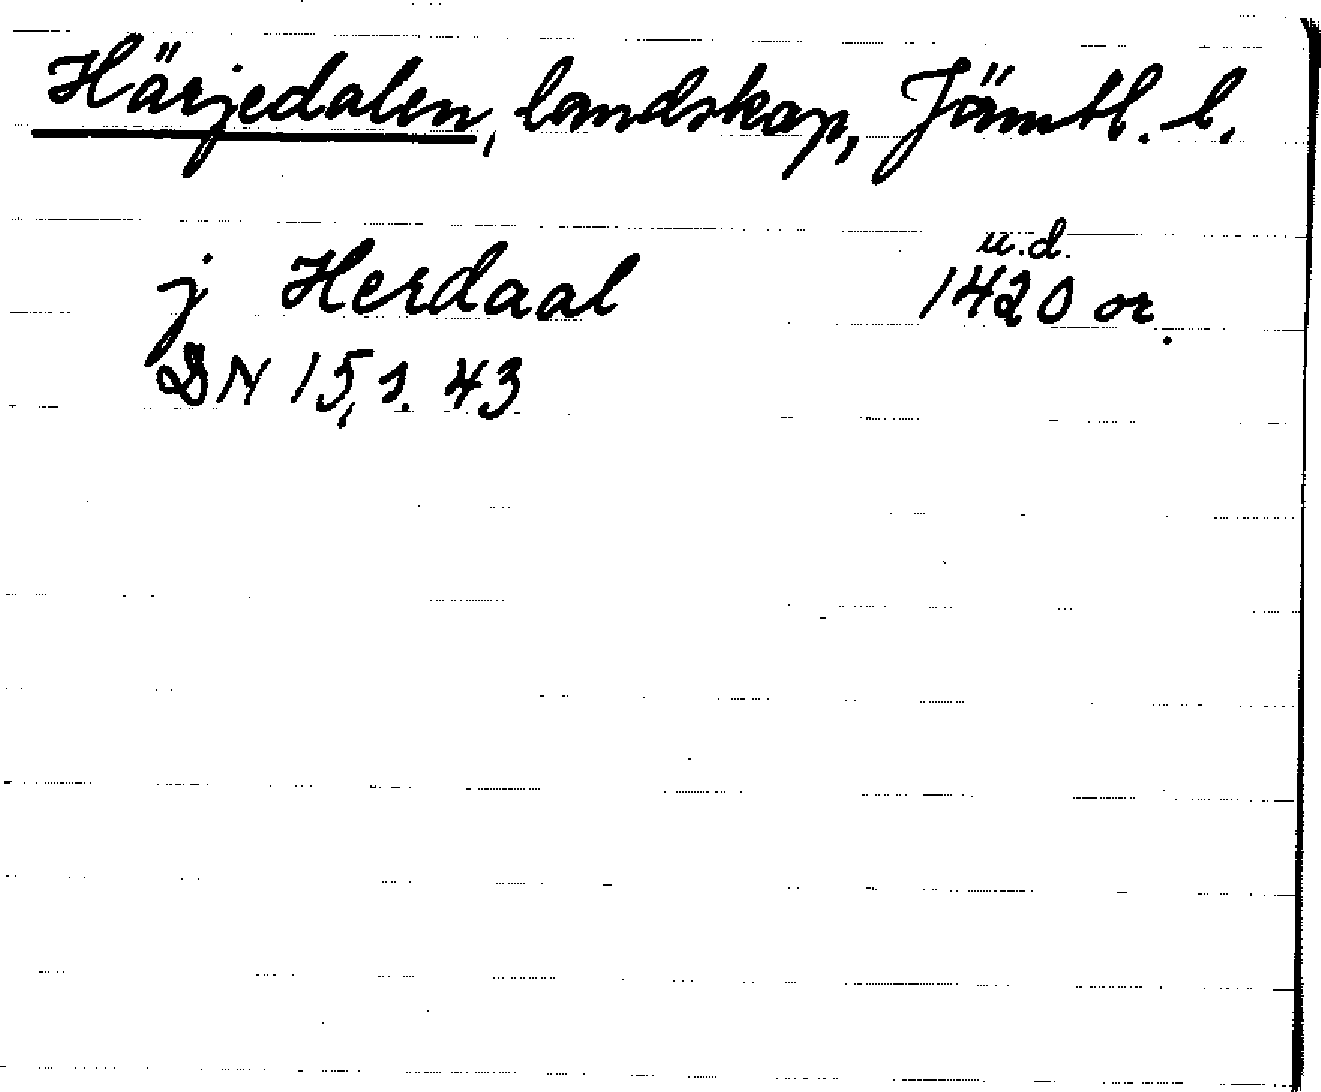 Härjedalen, landskap, Jämtl. l.
u.d.
j Herdaal 1420 or.
DN 15, s. 43